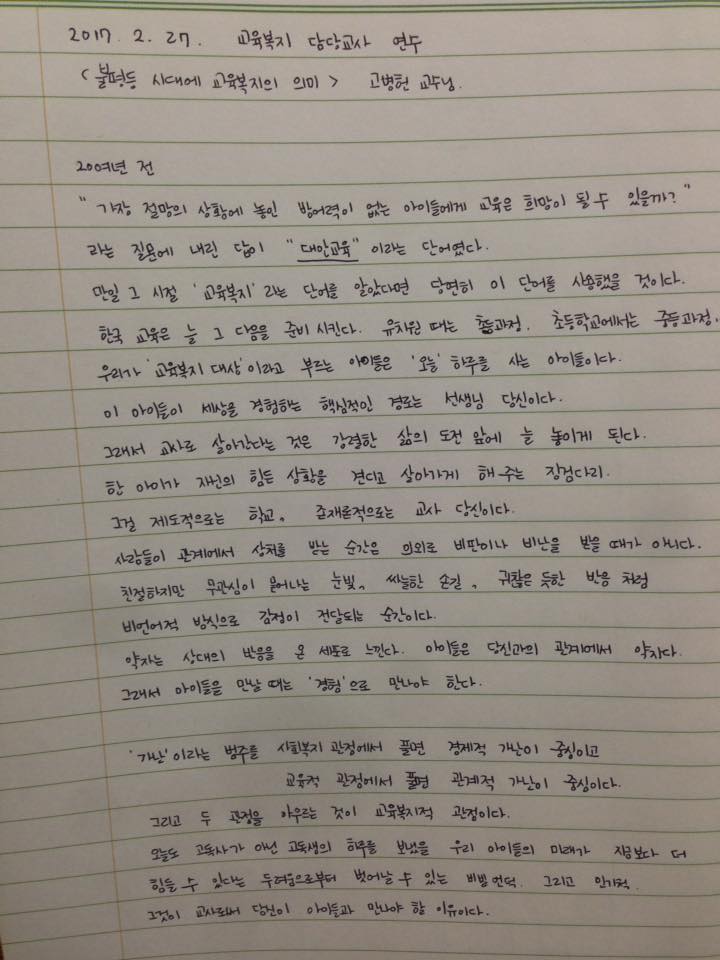 2017. 2. 27. 교육복지 담당교사 연수
<불평등 시대에 교육복지의 의미> 고병헌 교수님.
20여년 전
"가장 절망의 상황에 놓인 방어력이 없는 아이들에게 교육은 희망이 될 수 있을까?"
라는 질문에 내린 답이 "대안교육"이라는 단어였다.
만일 그 시절 '교육복지'라는 단어를 알았다면 당연히 이 단어를 사용했을 것이다.
한국 교육은 늘 그 다음을 준비 시킨다. 유치원 때는 초등과정. 초등학교에서는 중등과정.
우리가 '교육복지 대상'이라고 부르는 아이들은 '오늘' 하루를 사는 아이들이다.
이 아이들이 세상을 경험하는 핵심적인 경로는 선생님 당신이다.
그래서 교사로 살아간다는 것은 강렬한 삶의 도전 앞에 늘 놓이게 된다.
한 아이가 자신의 힘든 상황을 견디고 살아가게 해 주는 징검다리.
그걸 제도적으로는 학교, 존재론적으로는 교사 당신이다.
사람들이 관계에서 상처를 받는 순간은 의외로 비판이나 비난을 받을 때가 아니다.
친절하지만 무관심이 묻어나는 눈빛, 싸늘한 손길, 귀찮은 듯한 반응 처럼
비언어적 방식으로 감정이 전달되는 순간이다.
약자는 상대의 반응을 온 세포로 느낀다. 아이들은 당신과의 관계에서 약자다.
그래서 아이들을 만날 때는 '경험'으로 만나야 한다.
'가난'이라는 범주를 사회복지 관점에서 풀면 경제적 가난이 중심이고
교육적 관점에서 풀면 관계적 가난이 중심이다.
그리고 두 관점을 아우르는 것이 교육복지적 관점이다.
오늘도 고독사가 아닌 고독생의 하루를 보냈을 우리 아이들의 미래가 지금보다 더
힘들 수 있다는 두려움으로부터 벗어날 수 있는 비빌 언덕. 그리고 인기척.
그것이 교사로써 당신이 아이들과 만나야 할 이유이다.